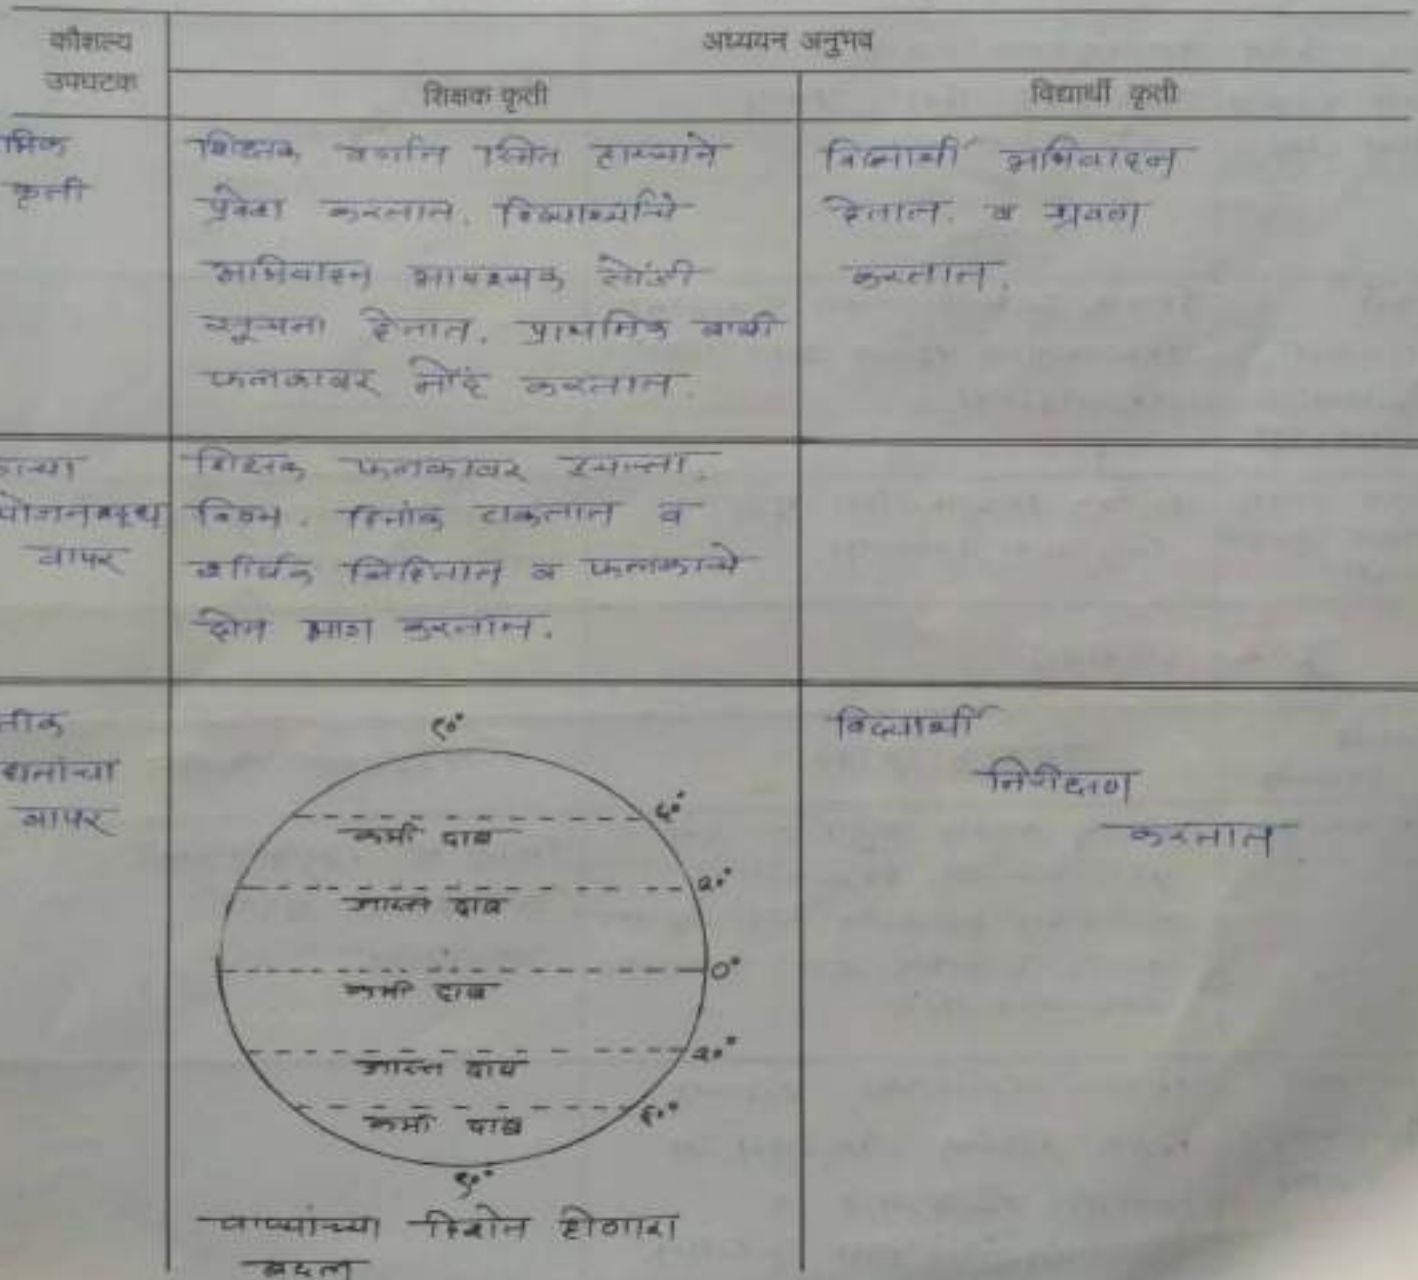 कौशल्य
उपघटक
अध्ययन अनुभव
शिक्षक कृती
विद्यार्थी कृती
मिक
कृती
शिक्षक वर्गात स्मित हास्याने
प्रवेश करतात. विद्यार्थ्यांचे
अभिवादन आवश्यक
सूचना देतात. प्राथमिक बाबी
फलकावर नोंद करतात.
विद्यार्थी अभिवादन
देतात. व श्रवण
करतात.
वापर
शिक्षक फलकावर इयत्ता,
विषय, दिनांक टाकतात व
शीर्षक लिहितात व फलकाचे
दोन भाग करतात.
वापर
९०°
६०°
कमी दाब
३०°
जास्त दाब
०°
कमी दाब
३०°
जास्त दाब
६०°
कमी दाब
९०°
वाऱ्यांच्या दिशेत होणारा
बदल
विद्यार्थी
निरीक्षण
करतात